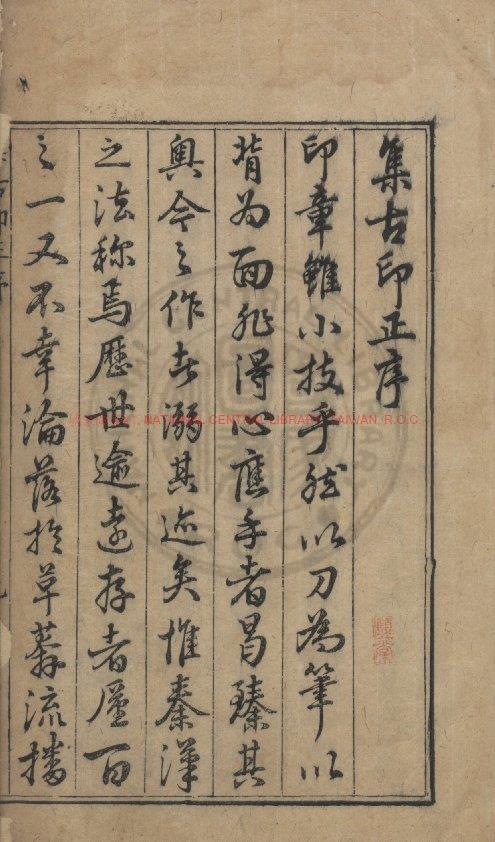 集古印正序
印章雖小技乎然以刀為筆以
背為面非得心應手者曷臻其
奧今之作者溺其迹矣惟秦漢
之法称焉歷世逾遠存者廑百
之一又不幸淪落於草莽流播
NATIONAL CENTRAL LIBRARY, TAIWAN, R.O.C